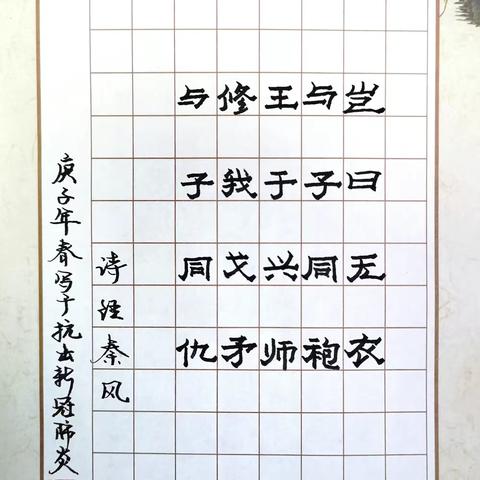 岂曰无衣
与子同袍
王于兴师
修我戈矛
与子同仇
诗经秦风
庚子年春写于抗击新冠肺炎